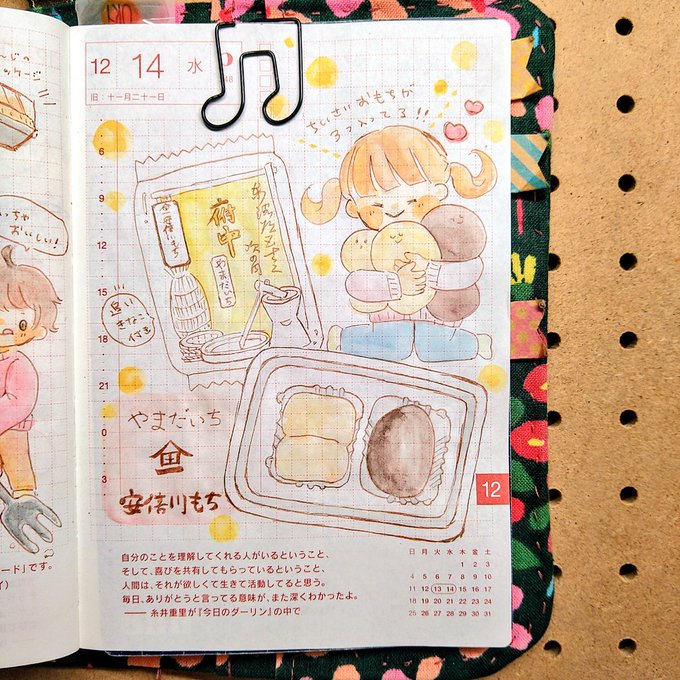 ッケージ
っちゃ
おいしい!
ード」です。
12 14 水
旧:十一月二十一日
ちいさいおもちが
3つ入ってる!!
安倍川もち
府中
やまだいち
追い
きなこ
付き
やまだいち
安倍川もち
6
9
12
15
18
21
0
3
12
自分のことを理解してくれる人がいるということ、
そして、喜びを共有してもらっているということ、
人間は、それが欲しくて生きて活動してると思う。
毎日、ありがとうと言ってる意味が、また深くわかったよ。
―― 糸井重里が『今日のダーリン』の中で
日 月 火 水 木 金 土
1 2 3
4 5 6 7 8 9 10
11 12 13 14 15 16 17
18 19 20 21 22 23 24
25 26 27 28 29 30 31